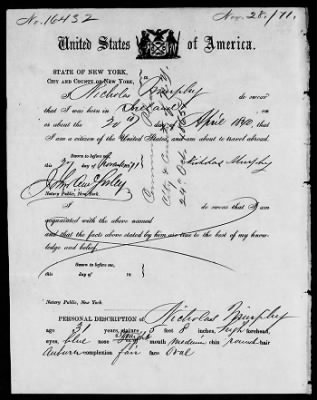 No. 16432
Nov. 28/71.
United States of America.
STATE OF NEW YORK,
CITY AND COUNTY OF NEW YORK,
I Nicholas Murphy do swear
that I was born in Ireland on
or about the 20 day of April 1840, that
I am a citizen of the United States, and am about to travel abroad.
Sworn to before me,
this day of
Nicholas Murphy
Notary Public, New York.
I do swear that I am
acquainted with the above named
and that the facts above stated by are true to the best of my know-
ledge and belief.
Sworn to before me,
this day of 18
Notary Public, New York.
PERSONAL DESCRIPTION OF Nicholas Murphy
age 31 years, stature 5 feet 8 inches, high forehead,
eyes, blue nose mouth medium chin round hair
Auburn complexion fair face Oval